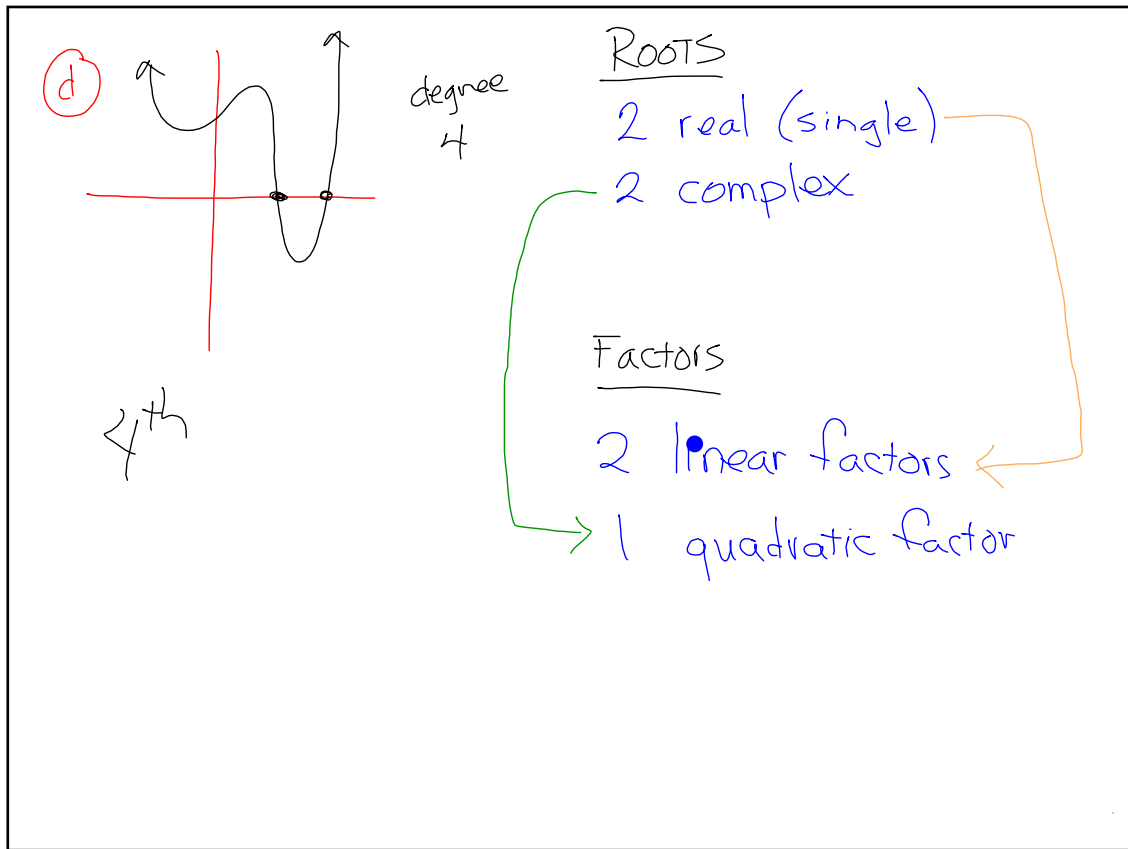 d
degree
4
4th
ROOTS
2 real (single)
2 complex
Factors
2 linear factors
1 quadratic factor